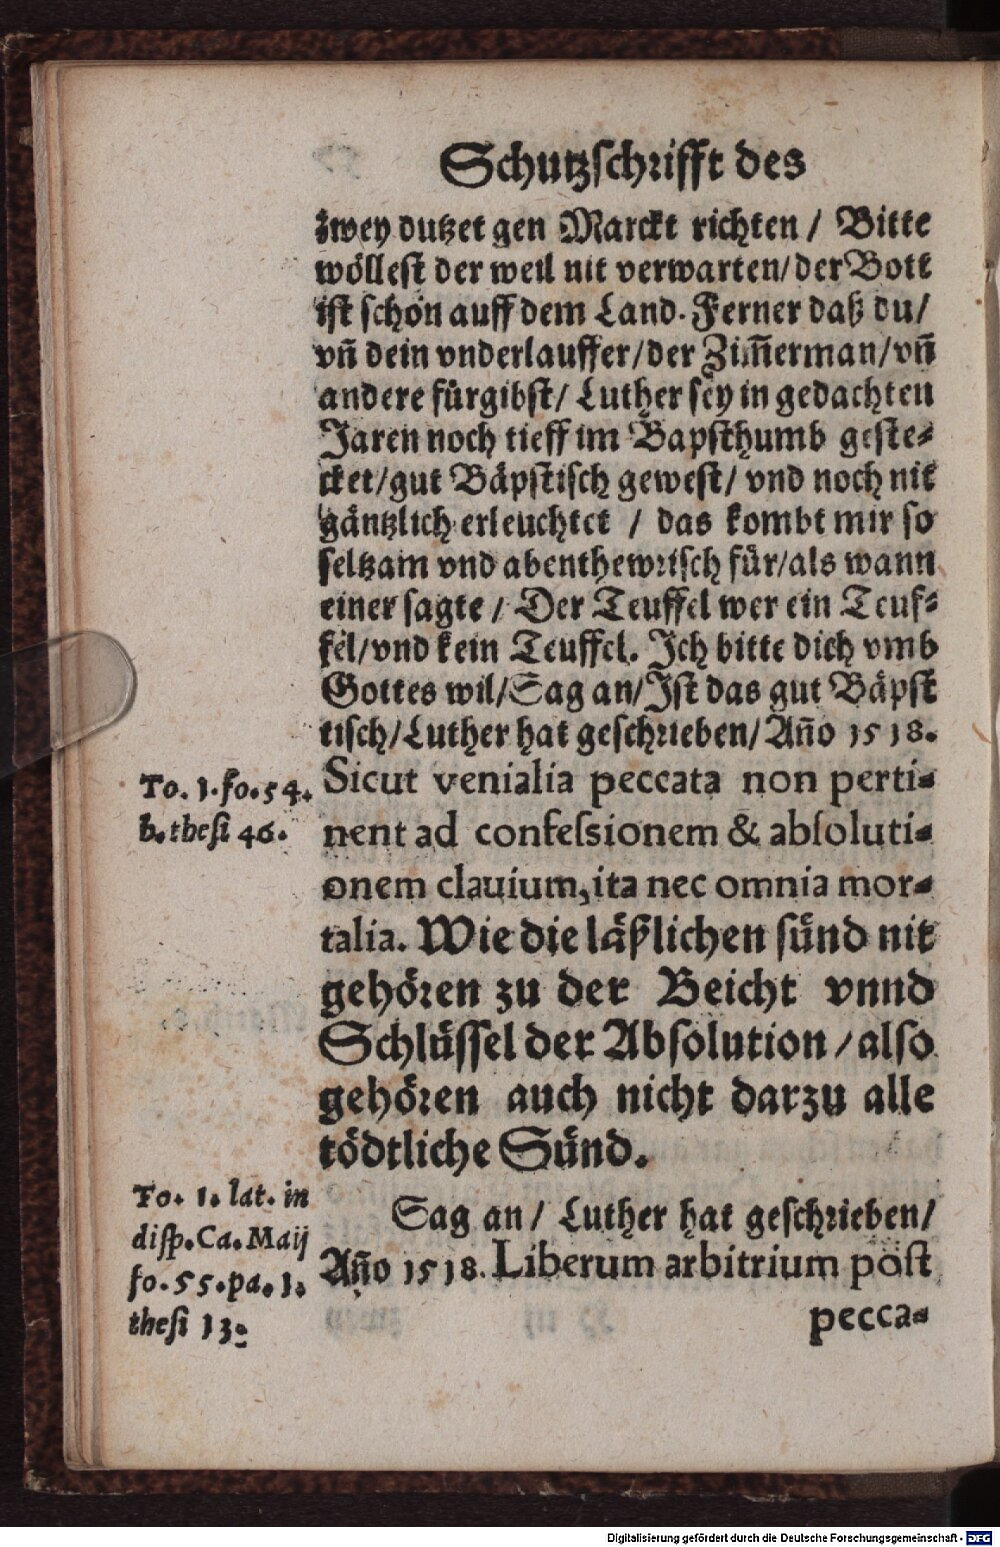 Schutzschrifft des
zwey dutzet gen Marckt richten / Bitte
wöllest der weil nit verwarten/der Bott
ist schon auff dem Land. Ferner daß du/
vñ dein vnderlauffer/der Zim̃erman/vñ
andere fürgibst/ Luther sey in gedachten
Jaren noch tieff im Bapsthumb geste-
cket/gut Bäpstisch gewest/ vnd noch nit
gäntzlich erleuchtet / das kombt mir so
seltzam vnd abenthewrisch für/als wann
einer sagte / Der Teuffel wer ein Teuf-
fel/vnd kein Teuffel. Ich bitte dich vmb
Gottes wil/Sag an/Ist das gut Bäpst
tisch/Luther hat geschrieben/Año 1518.
To. 1. fo. 54.
b. thesi 46.
Sicut venialia peccata non perti-
nent ad confessionem & absoluti-
onem clauium, ita nec omnia mor-
talia. Wie die läßlichen sünd nit
gehören zu der Beicht vnnd
Schlüssel der Absolution / also
gehören auch nicht darzu alle
tödtliche Sünd.
To. 1. lat. in
disp. Ca. Maij
fo. 55. pa. 1.
thesi 13.
Sag an/ Luther hat geschrieben/
Año 1518. Liberum arbitrium post
pecca-
Digitalisierung gefördert durch die Deutsche Forschungsgemeinschaft - DFG